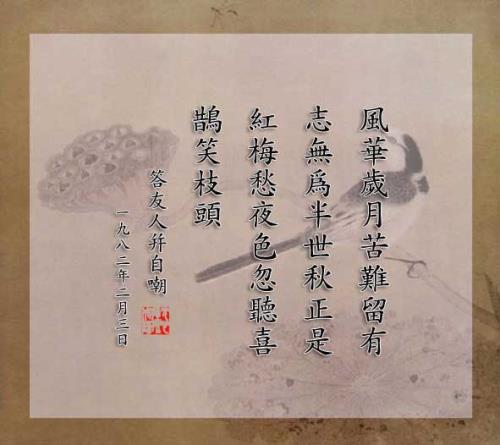 風華歲月苦難留有
志無爲半世秋正是
紅梅愁夜色忽聽喜
鵲笑枝頭
答友人幷自嘲
一九八二年二月三日